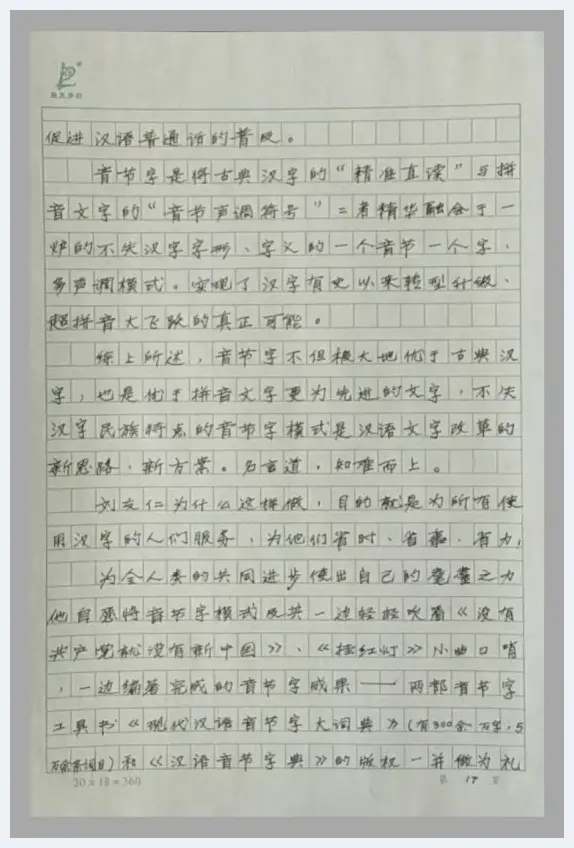 促进汉语普通话的普及。
音节字是将古典汉字的“精准直读”与拼
音文字的“音节声调符号”二者精华融合于一
炉的不失汉字字形、字义的一个音节一个字、
多声调模式。实现了汉字有史以来转型升级、
超拼音大飞跃的真正可能。
综上所述，音节字不但极大地优于古典汉
字，也是优于拼音文字更为先进的文字，不失
汉字民族特点的音节字模式是汉语文字改革的
新思路、新方案。名言道，知难而上。
刘友仁为什么这样做，目的就是为所有使
用汉字的人们服务，为他们省时、省事、省力，
为全人类的共同进步使出自己的毫厘之力
他自愿将音节字模式及其一边轻轻吹着《没有
共产党就没有新中国》、《挂红灯》小曲口哨
，一边编著完成的音节字成果——两部音节字
工具书《现代汉语音节字大词典》（有300余万字，5
万余条词目）和《汉语音节字典》的版权一并做为礼
20×18=360
第 17 页